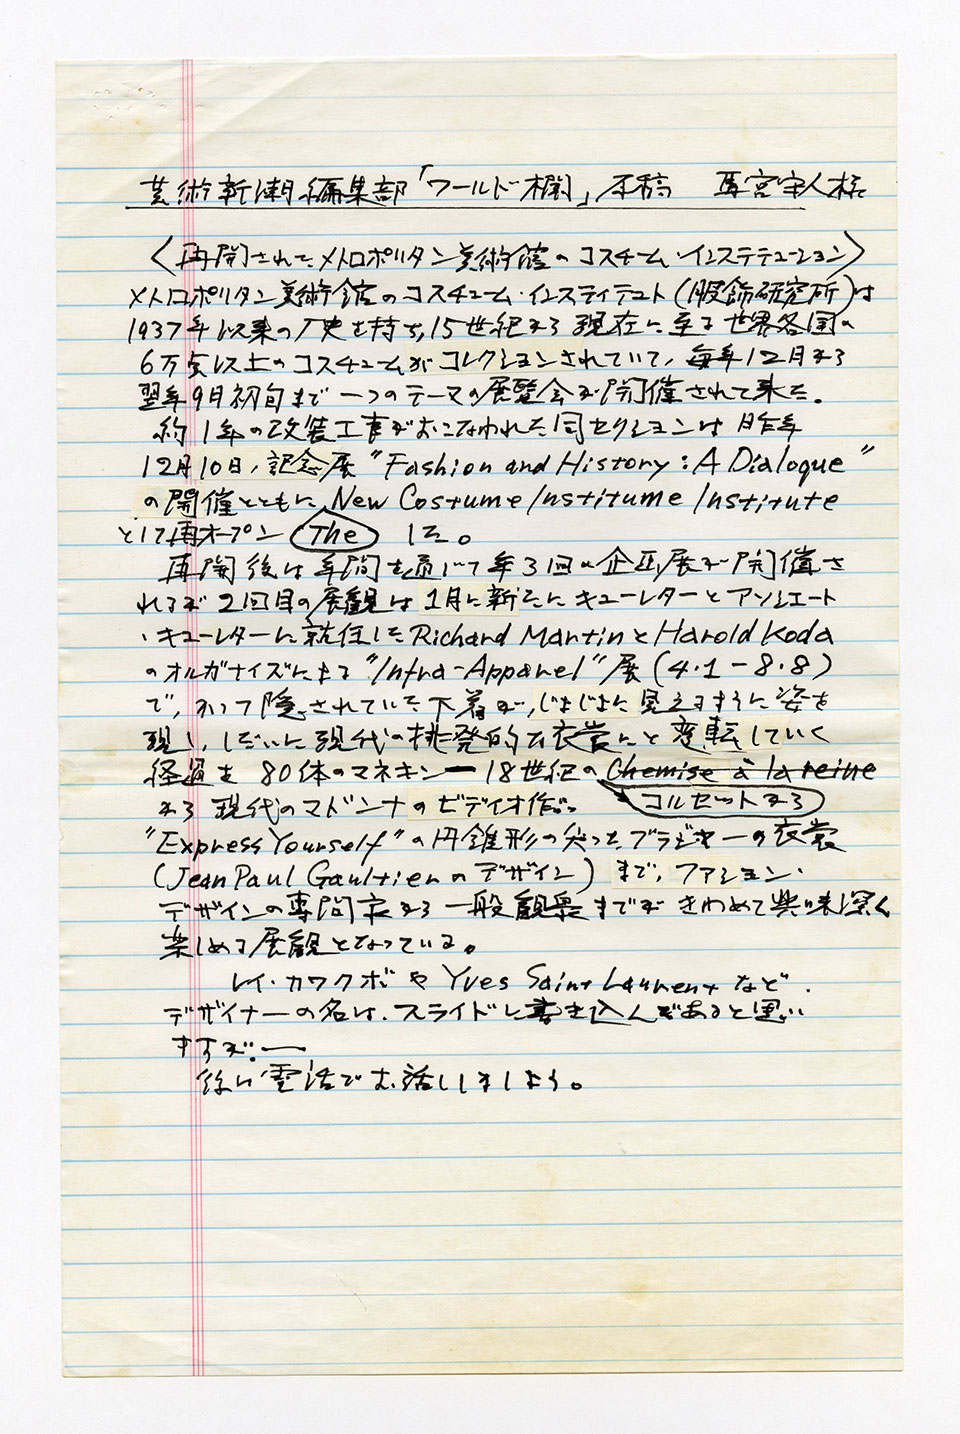 芸術新潮編集部「ワールド欄」原稿 馬宮守人様
〈再開されたメトロポリタン美術館のコスチーム・インステテューション〉
メトロポリタン美術館のコスチューム・インスティテュト(服飾研究所)は
1937年以来の歴史を持ち、15世紀から現在に至る世界各国の
6万点以上のコスチュームがコレクションされていて、毎年12月から
翌年9月初旬まで一つのテーマの展覧会が開催されて来た。
約1年の改装工事がおこなわれた同セクションは昨年
12月10日、記念展"Fashion and History : A Dialogue"
の開催とともに New Costume Institume Institute
として再オープン The した。
再開後は年間を通じて年3回の企画展が開催さ
れるが2回目の展観は1月に新たにキューレターとアソシエート
・キューレターに就任した Richard Martin と Harold Koda
のオルガナイズによる "Infra-Apparel" 展 (4・1-8・8)
で、かつて隠されていた下着が、じょじょに見えるように姿を
現し、しだいに現代の挑発的な衣裳にと変転していく
経過を 80体のマネキン ー 18世紀の Chemise à la reine
コルセットから
から現代のマドンナのビデイオ作品
"Express Yourself" の円錐形の尖ったブラジャーの衣裳
(Jean Paul Gaultier のデザイン) まで、ファション・
デザインの専門家から一般観衆までがきわめて興味深く
楽しめる展観となっている。
レイ・カワクボや Yves Saint Laurent など
デザイナーの名は、スライドに書き込んであると思い
ますが、ー
後は電話でお話しましょう。